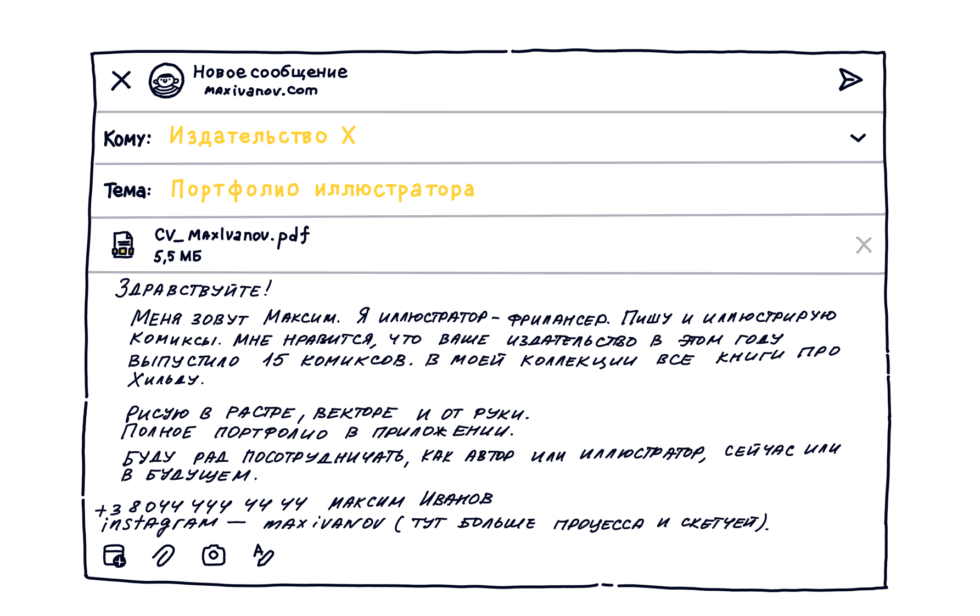 Новое сообщение
maxivanov.com
Кому: Издательство X
Тема: Портфолио иллюстратора
CV_MaxIvanov.pdf
5,5 МБ
Здравствуйте!
Меня зовут Максим. Я иллюстратор-фрилансер. Пишу и иллюстрирую
комиксы. Мне нравится, что ваше издательство в этом году
выпустило 15 комиксов. В моей коллекции все книги про
Хильду.
Рисую в растре, векторе и от руки.
Полное портфолио в приложении.
Буду рад посотрудничать, как автор или иллюстратор, сейчас или
в будущем.
+38044 444 44 44 Максим Иванов
instagram — maxivanov (тут больше процесса и скетчей).